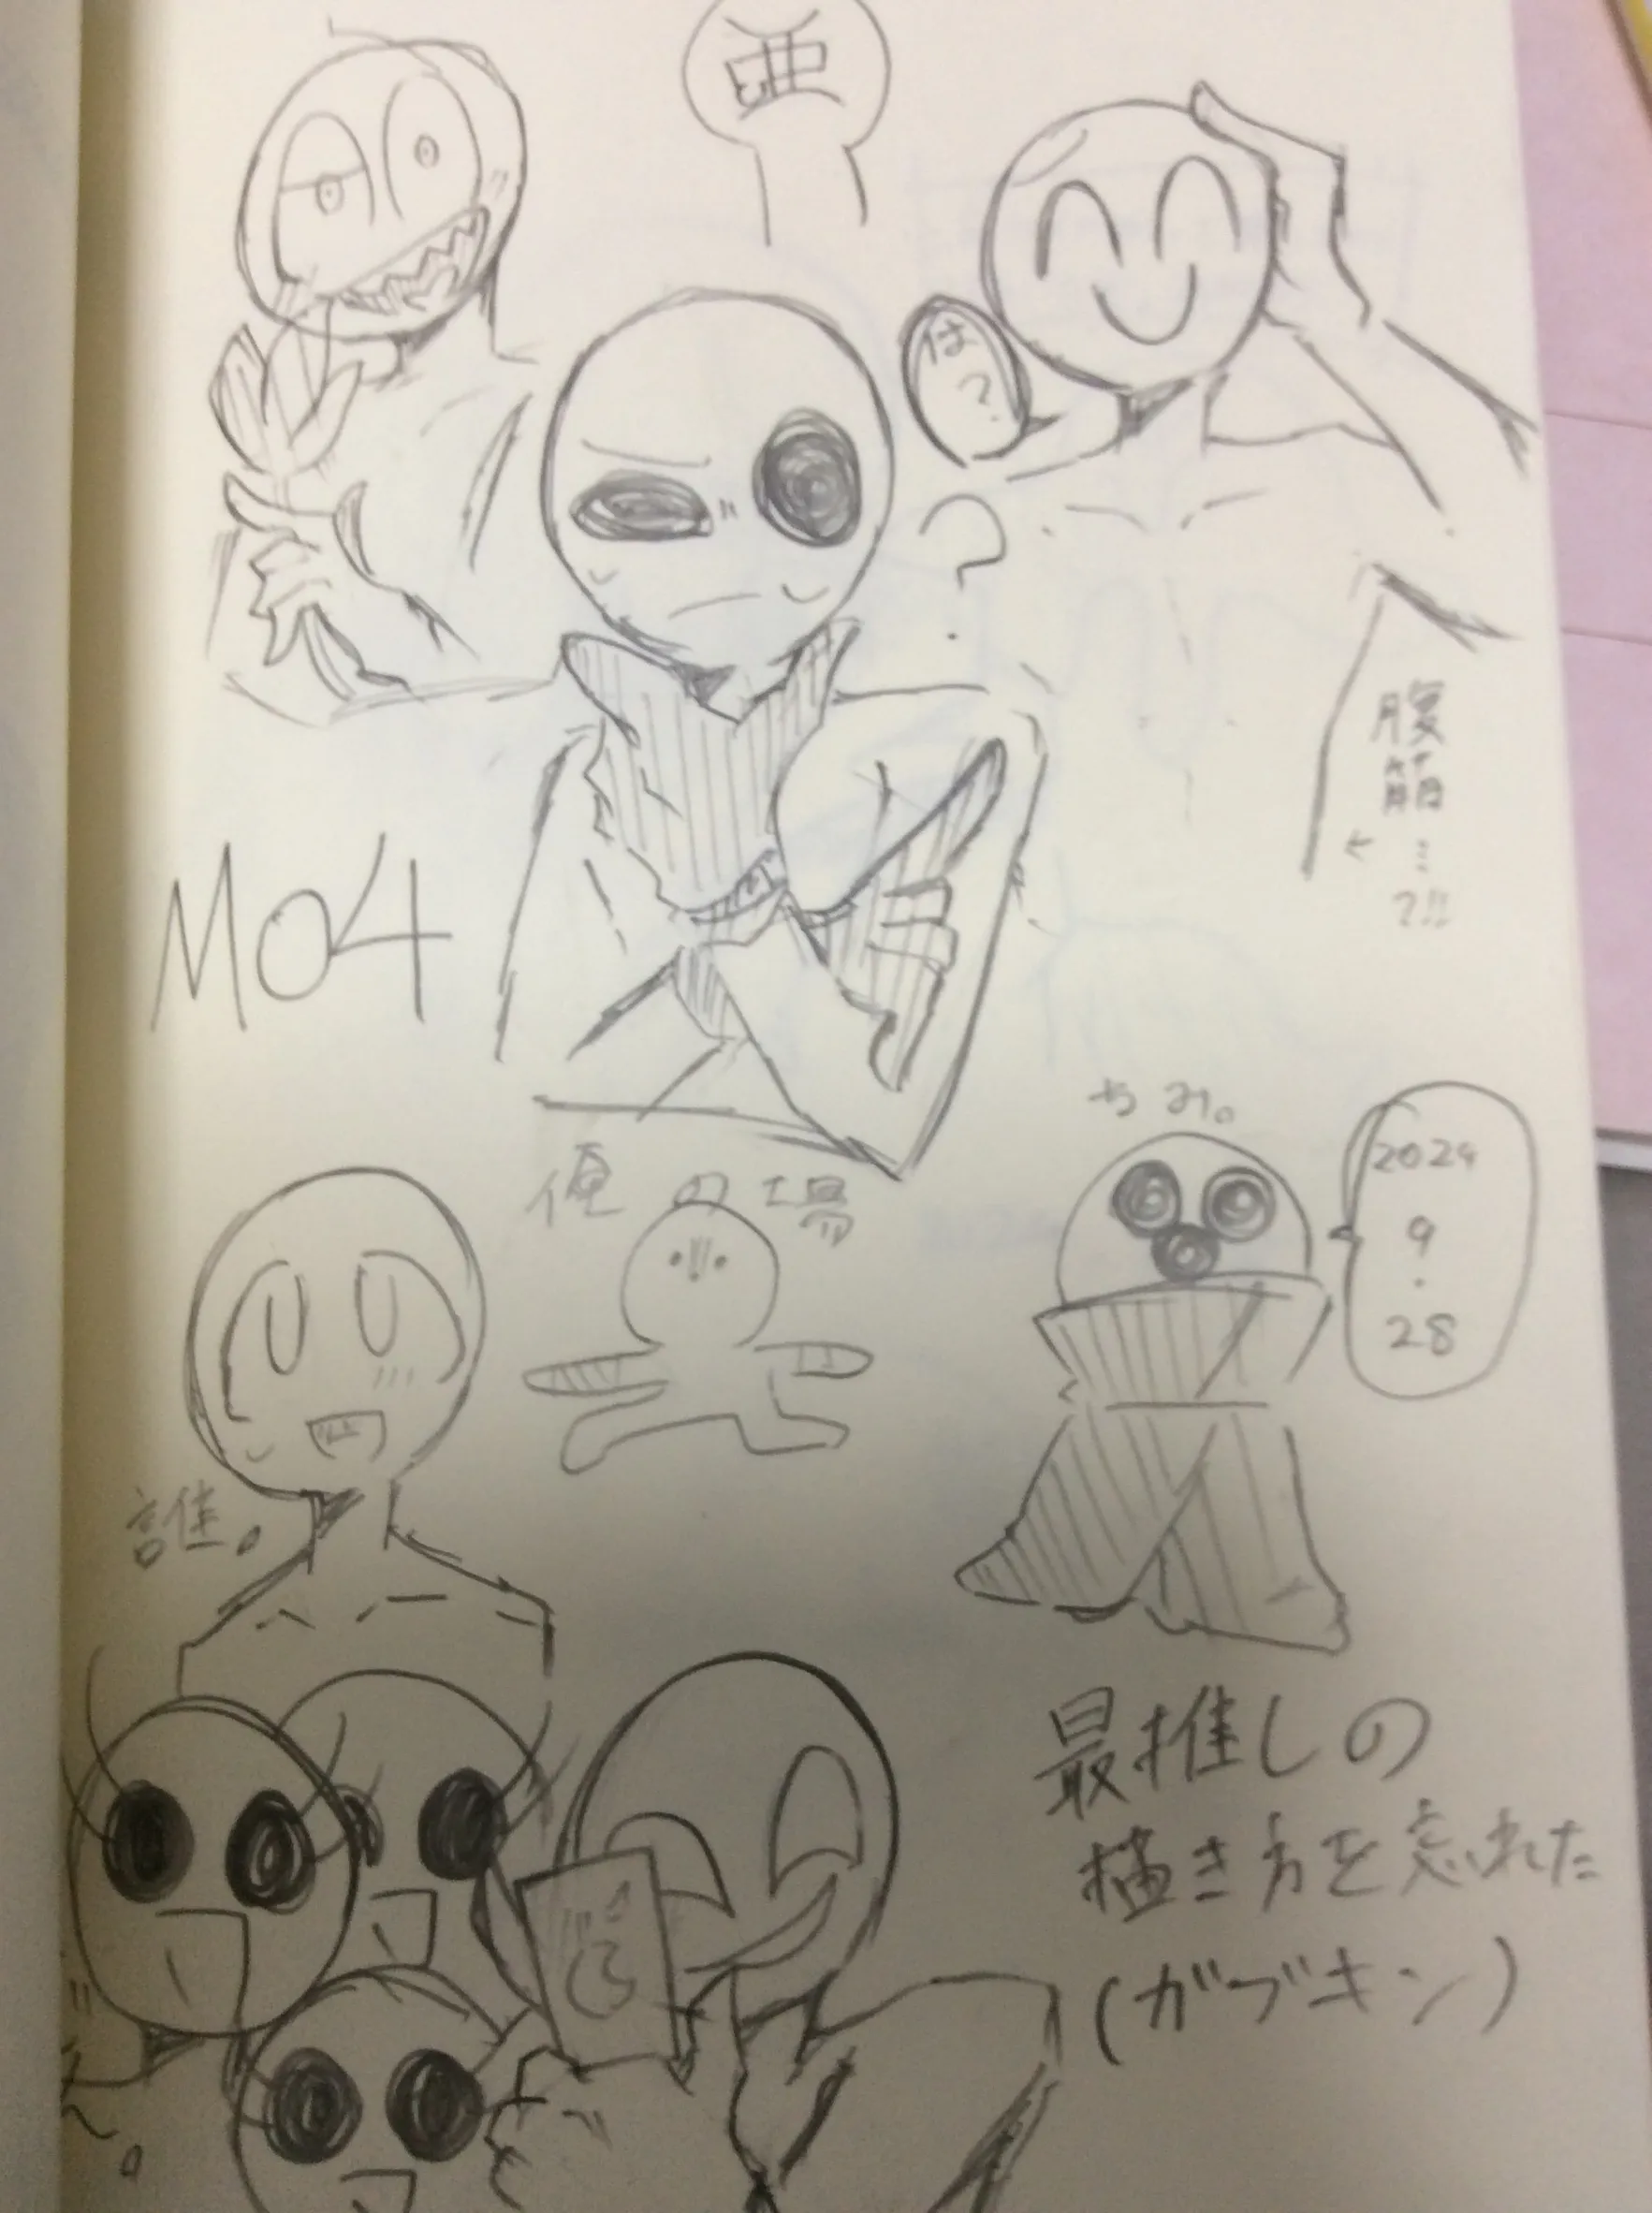 亜
は?
?
腹筋…?!!
M04
ちみ。
2024
9
.
28
の工場
誰。
最推しの
描き方を忘れた
(ガブキン)